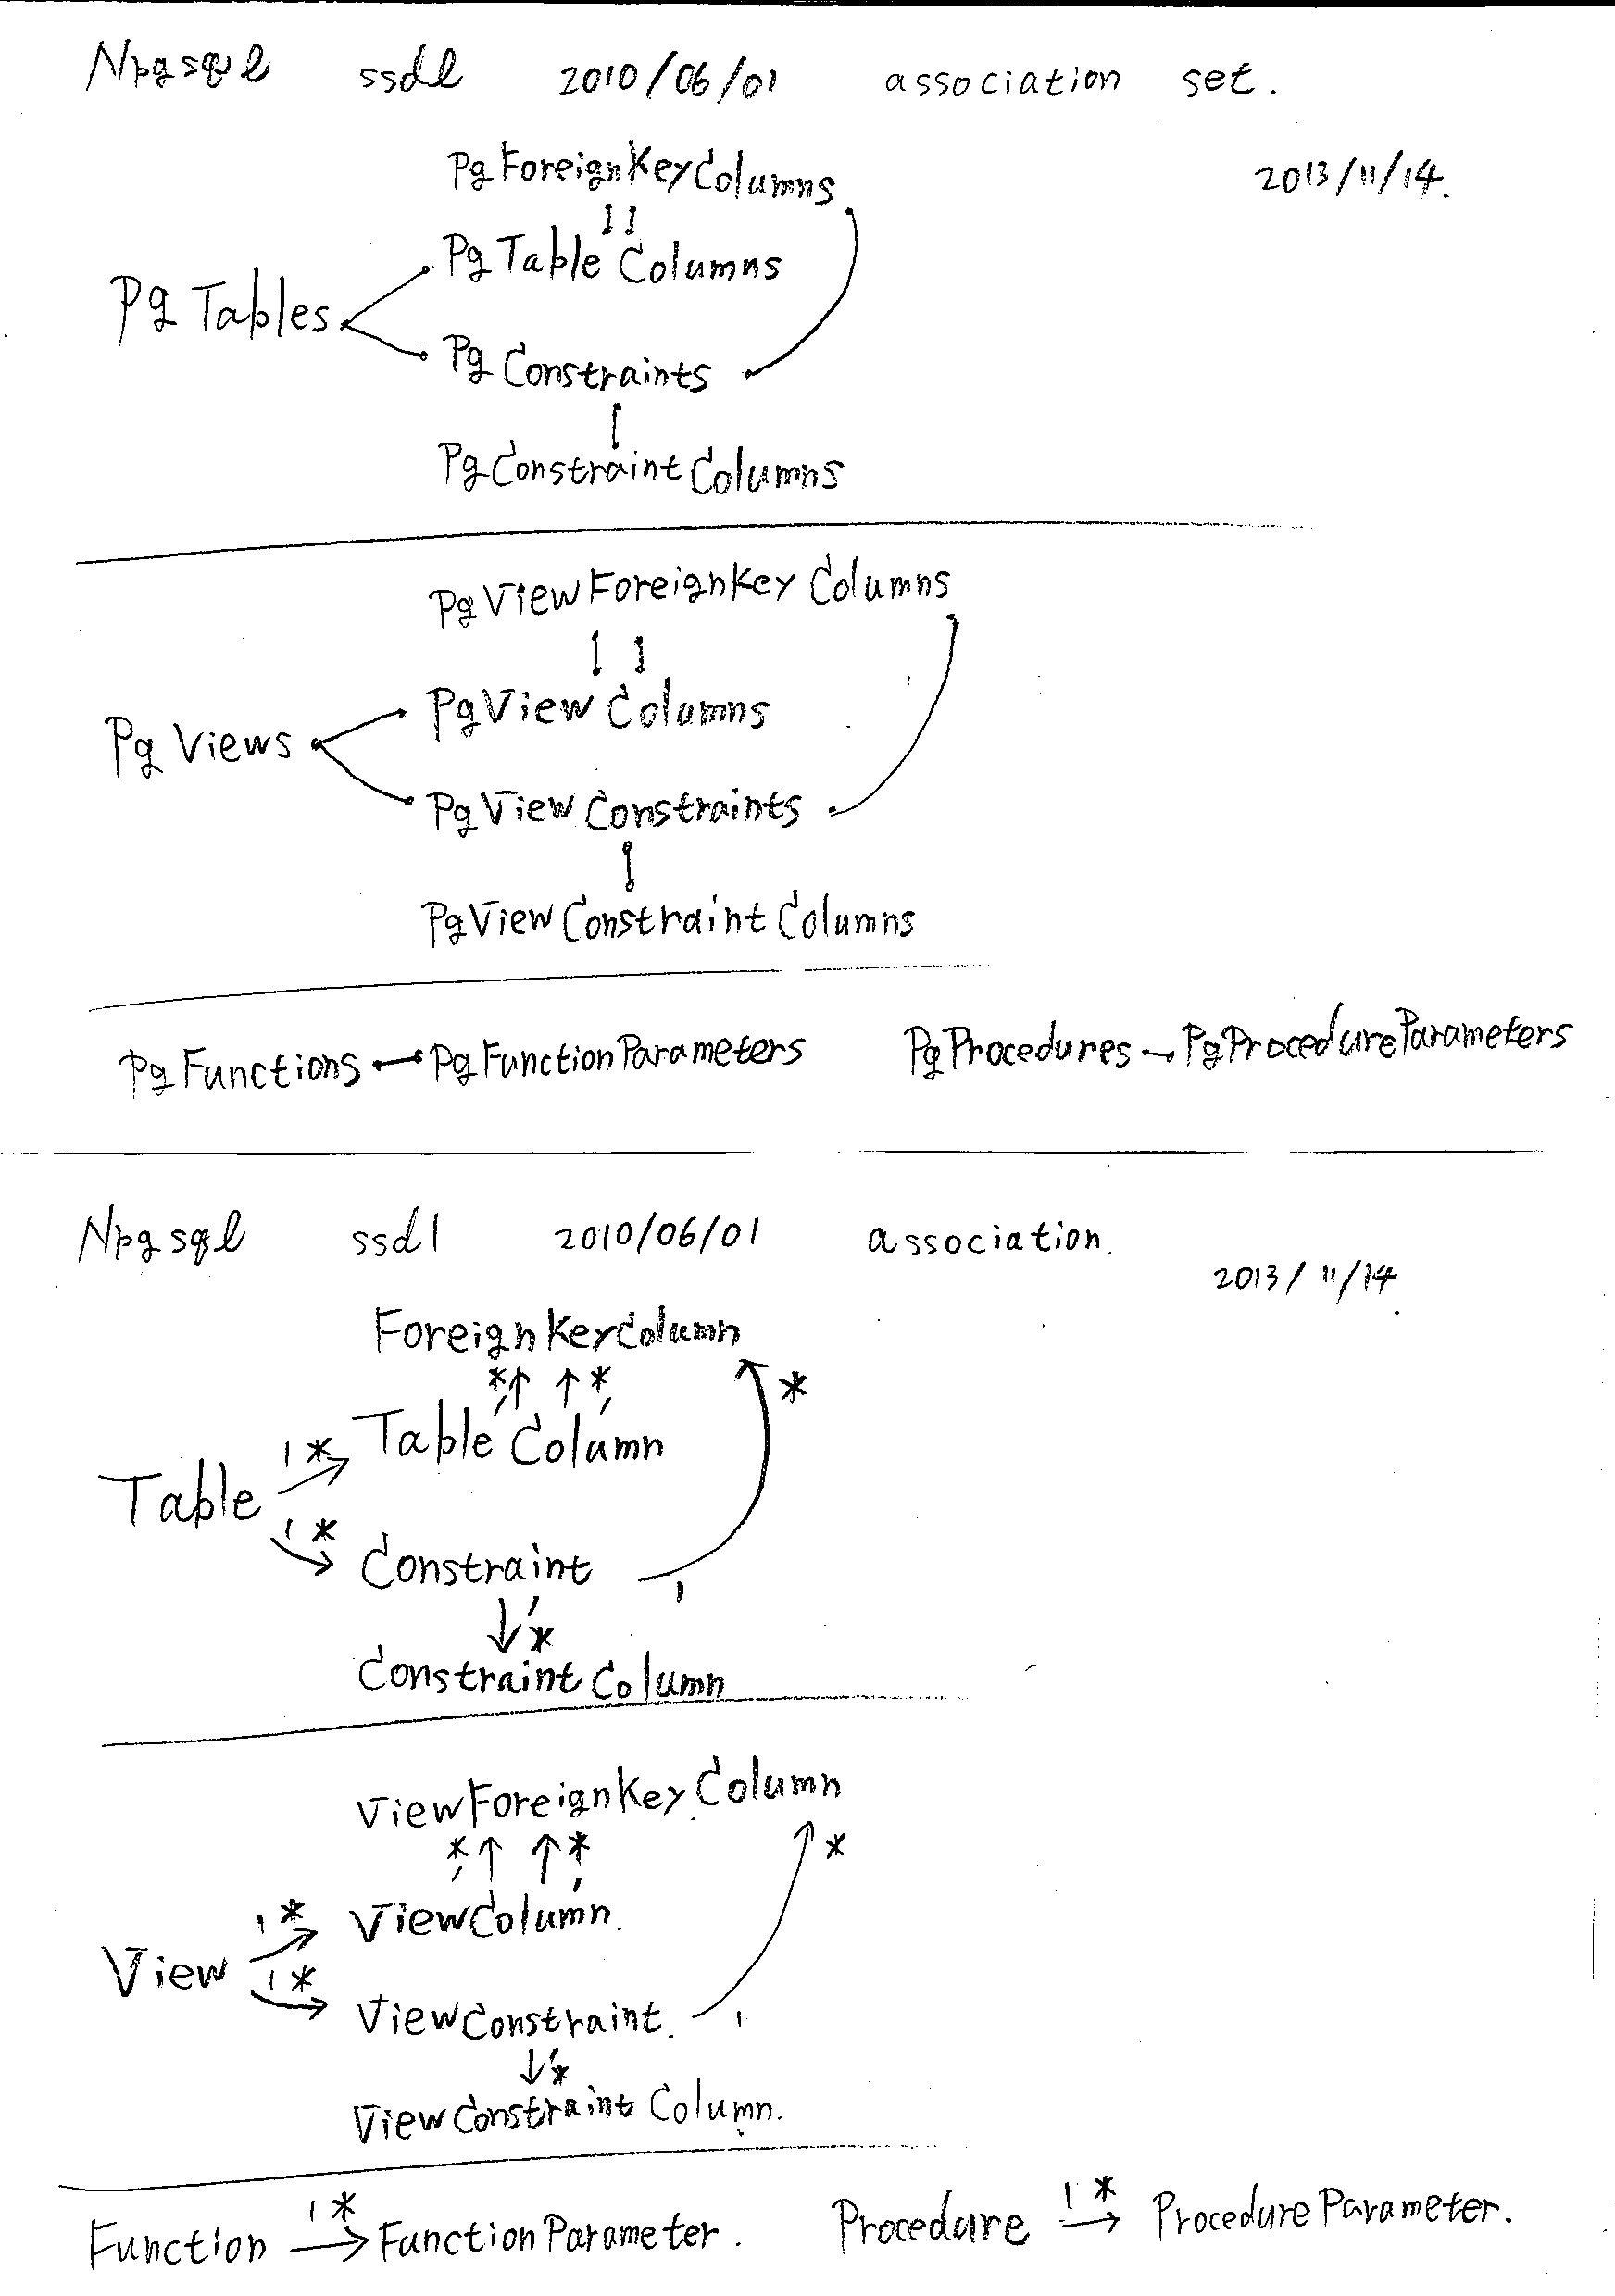 Npgsql ssdl 2010/06/01 association set.
2013/11/14.
PgForeignKeyColumns
PgTableColumns
PgTables
PgConstraints
PgConstraintColumns
PgViewForeignKeyColumns
PgViewColumns
PgViews
PgViewConstraints
PgViewConstraintColumns
PgFunctions PgFunctionParameters PgProcedures PgProcedureParameters
Npgsql ssdl 2010/06/01 association.
2013/11/14
ForeignKeyColumn
* * *
1 1
TableColumn
1 *
Table
1 *
Constraint 1
1
*
ConstraintColumn
ViewForeignKeyColumn
* * *
1 1
1 * ViewColumn.
View
1 *
ViewConstraint. 1
1
*
ViewConstraintColumn.
1 * 1 *
Function → FunctionParameter. Procedure → ProcedureParameter.